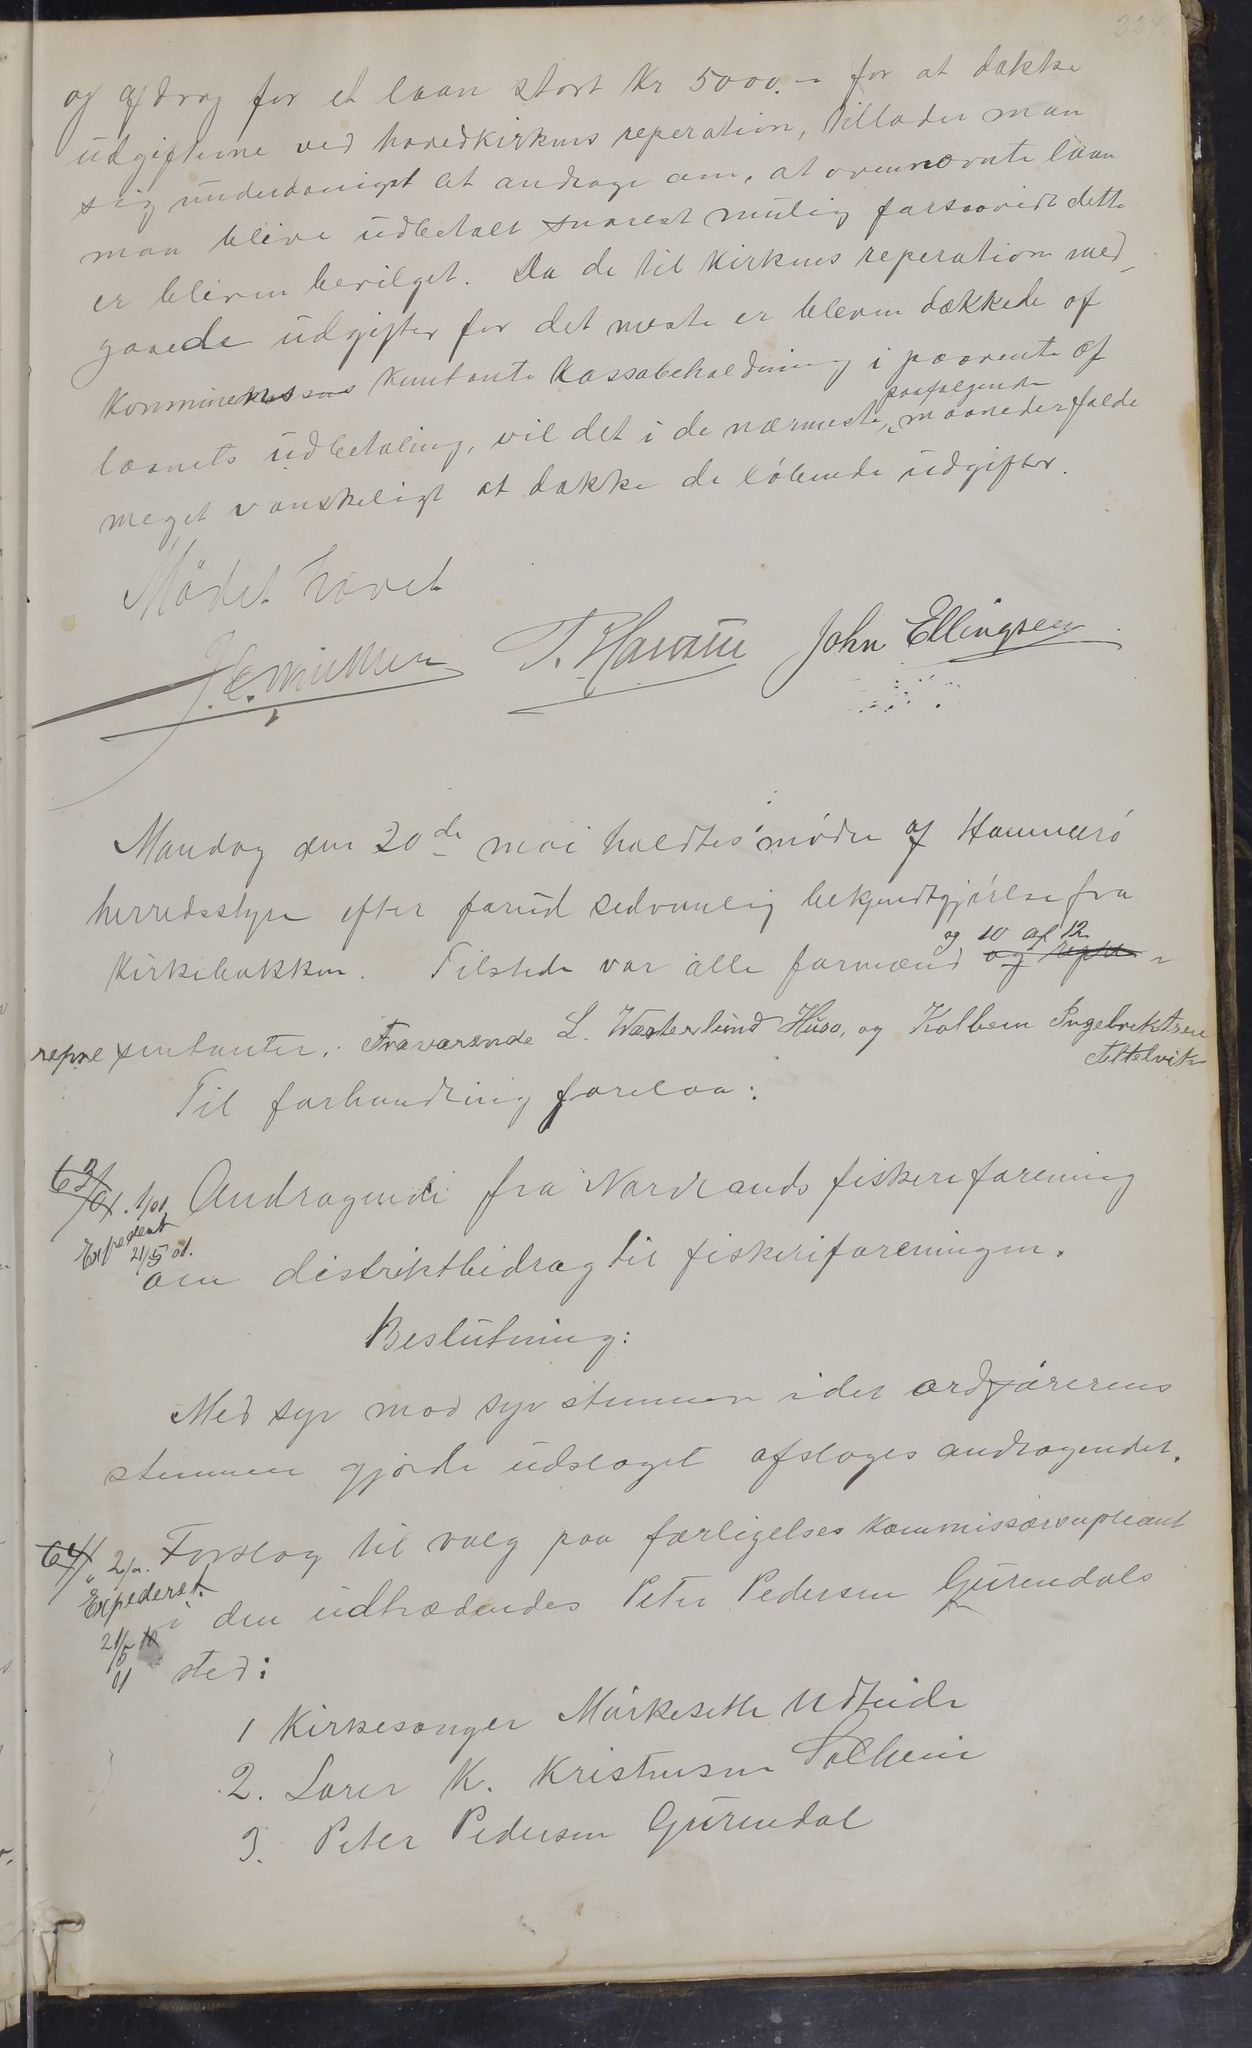 224
og afdrag for et laan stort Kr 5000.- for at dække
udgifterne ved hovedkirkens reperation, tillader man
sig underdanigst at andrage om, at ovennævnte laan
maa blive udbetalt snarest mulig forsaavidt dette
er bleven bevilget. Da de til kirkens reperation med-
gaaede udgifter for det meste er bleven dækkede af
Kommunens kontante Kassabeholdning i paavente af
laanets udbetaling, vil det i de nærmeste paafølgende maaneder falde
meget vanskeligt at dække de løbende udgifter.
Mødet hævet
John Ellingsen
Mandag den 20de mai holdtes møde af Hammerø
herredsstyre efter forud sedvanlig bekjendtgjørelse fra
Kirkebakken. Tilstede var alle formænd og 10 af 12
repræsentanter. Fraværende L. Westerlund Huso, og Kolben Ingebriktsen
Tettelvik
Til forhandling forelaa:
63/01. 1/01. Andragende fra Nordlands fiskeriforening
Expedert 21/5 01.
om distriktbidrag til fiskeriforeningen.
Beslutning:
Med syv mod syv stemmer idet ordførerens
stemme gjorde udslaget afsloges andragendet.
64/ " 2/01. Forslag til valg paa forligelses kommissærsupleant
Expederet
i den udtrædendes Peter Pedersen Gurendals
21/5 01
sted:
1 Kirkesanger Mørkesette Udteide
2. Lærer K. Kristensen Solheim
3. Peter Pedersen Gurendal